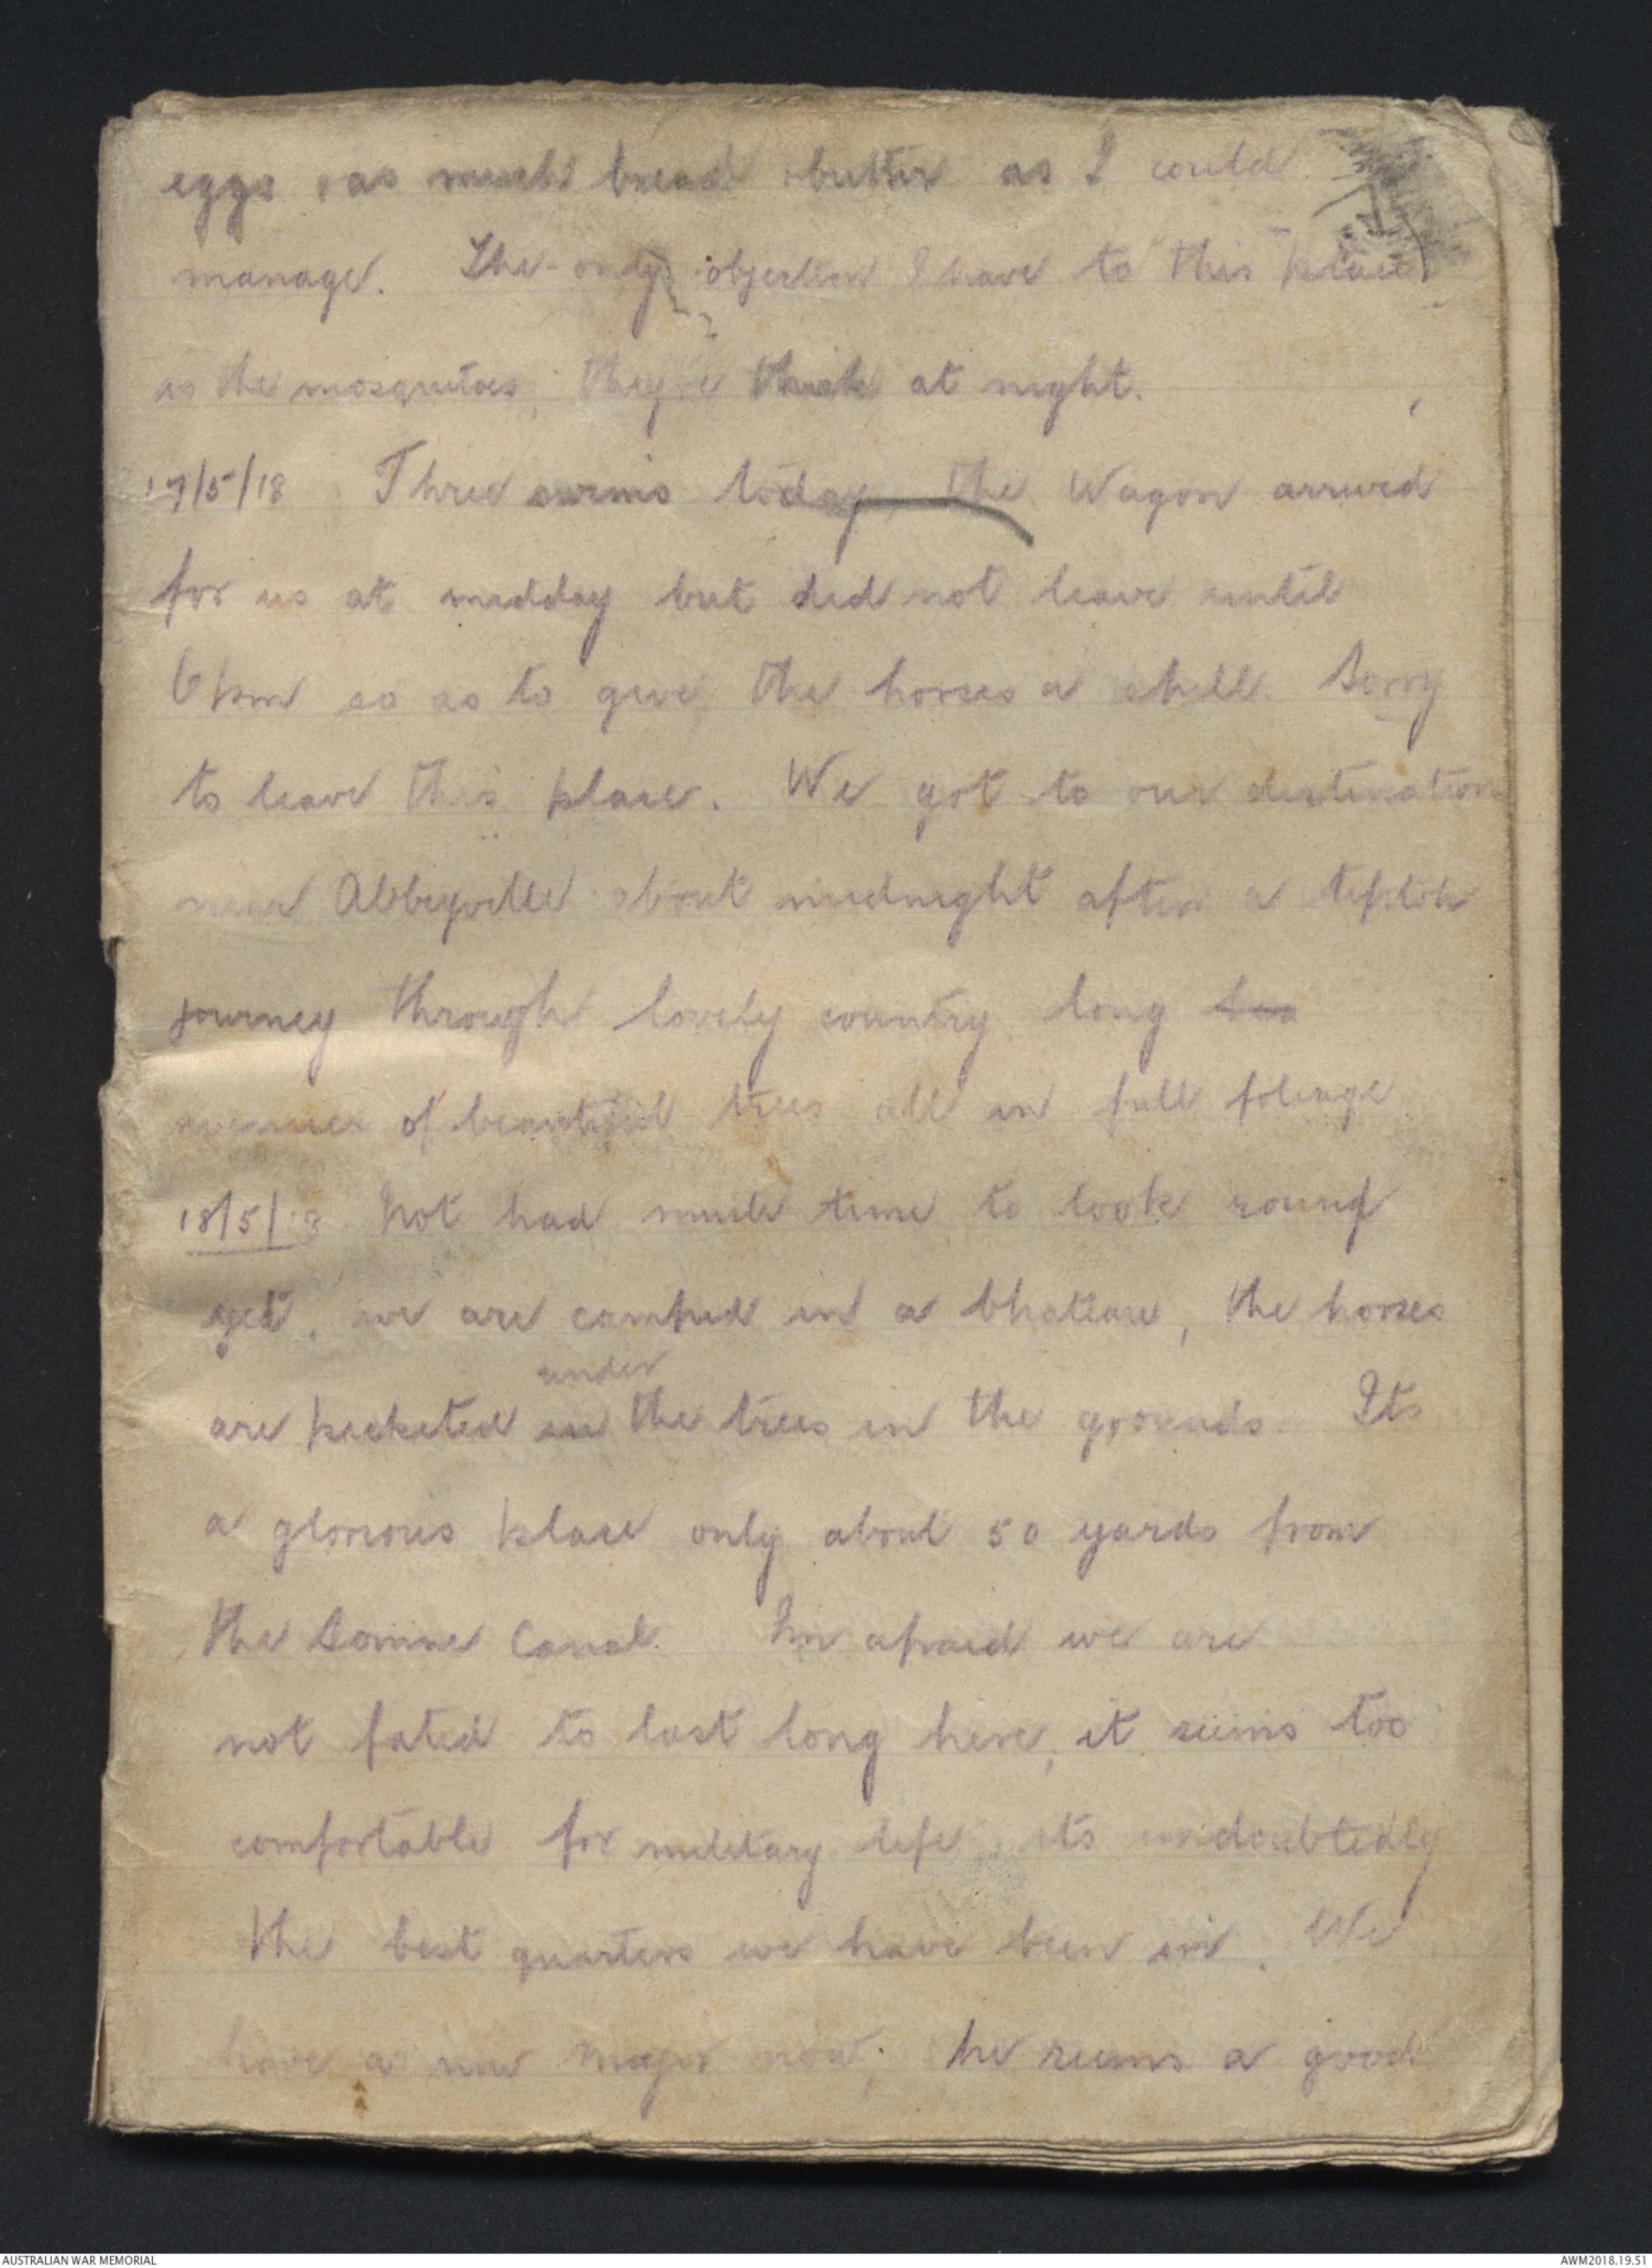 eggs & as much bread & butter as I could
manage. The only objection I have to this place
is the mosquitoes, they're thick at night.
17/5/18 Three swims today, the Wagon arrived
for us at midday but did not leave until
6 pm so as to give the horses a spell. Sorry
to leave this place. We got to our destination
near Abbeyville about midnight after a tiptop
journey through lovely country, long
avenues of beautiful trees all in full foliage
18/5/18 Not had much time to look round
yet, we are camped in a Chateau, the horses
under
are picketed in the trees in the grounds. Its
a glorious place only about 50 yards from
the Somme Canal. Im afraid we are
not fated to last long here, it seems too
comfortable for military life, its undoubtedly
the best quarters we have been in. We
have a new major now, he seems a good
AUSTRALIAN WAR MEMORIAL
AWM2018.19.51